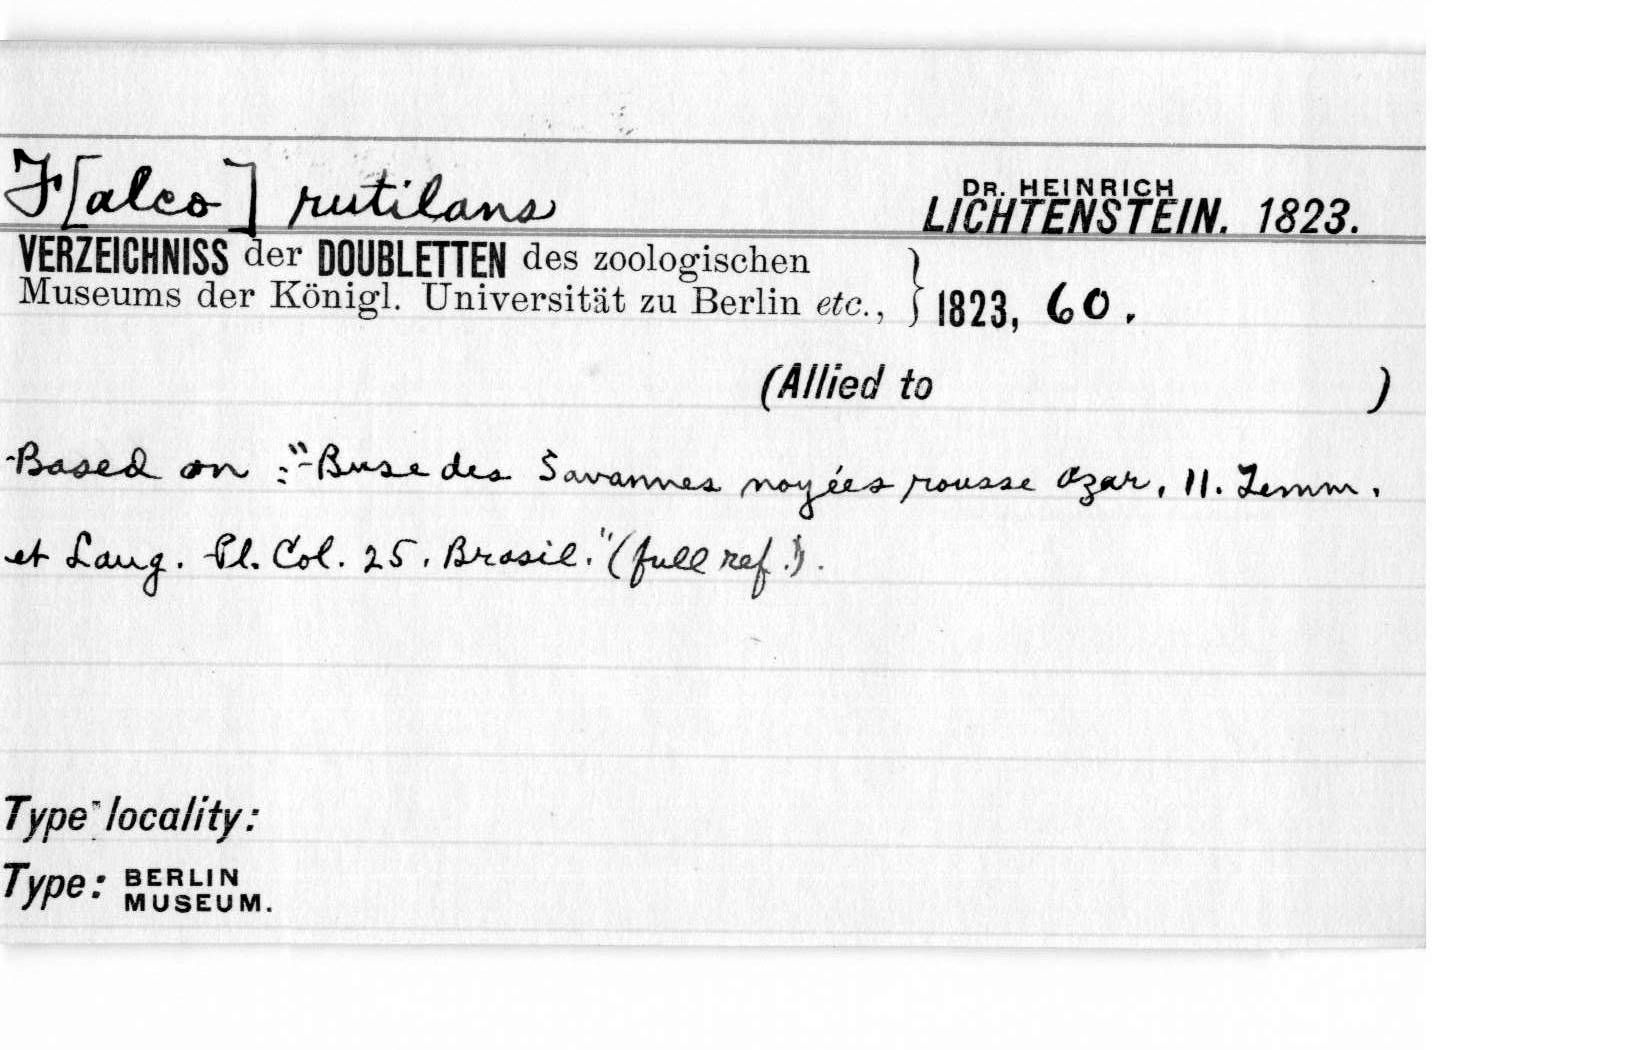 F[alco] rutilans
DR. HEINRICH
LICHTENSTEIN. 1823.
VERZEICHNISS der DOUBLETTEN des zoologischen
Museums der Königl. Universität zu Berlin etc., } 1823, 60.
(Allied to )
Based on :- "Buse des Savannes noyées rousse Azar, 11. Temm.
et Laug. Pl. Col. 25. Brasil." (full ref.!).
Type locality:
Type: BERLIN
MUSEUM.